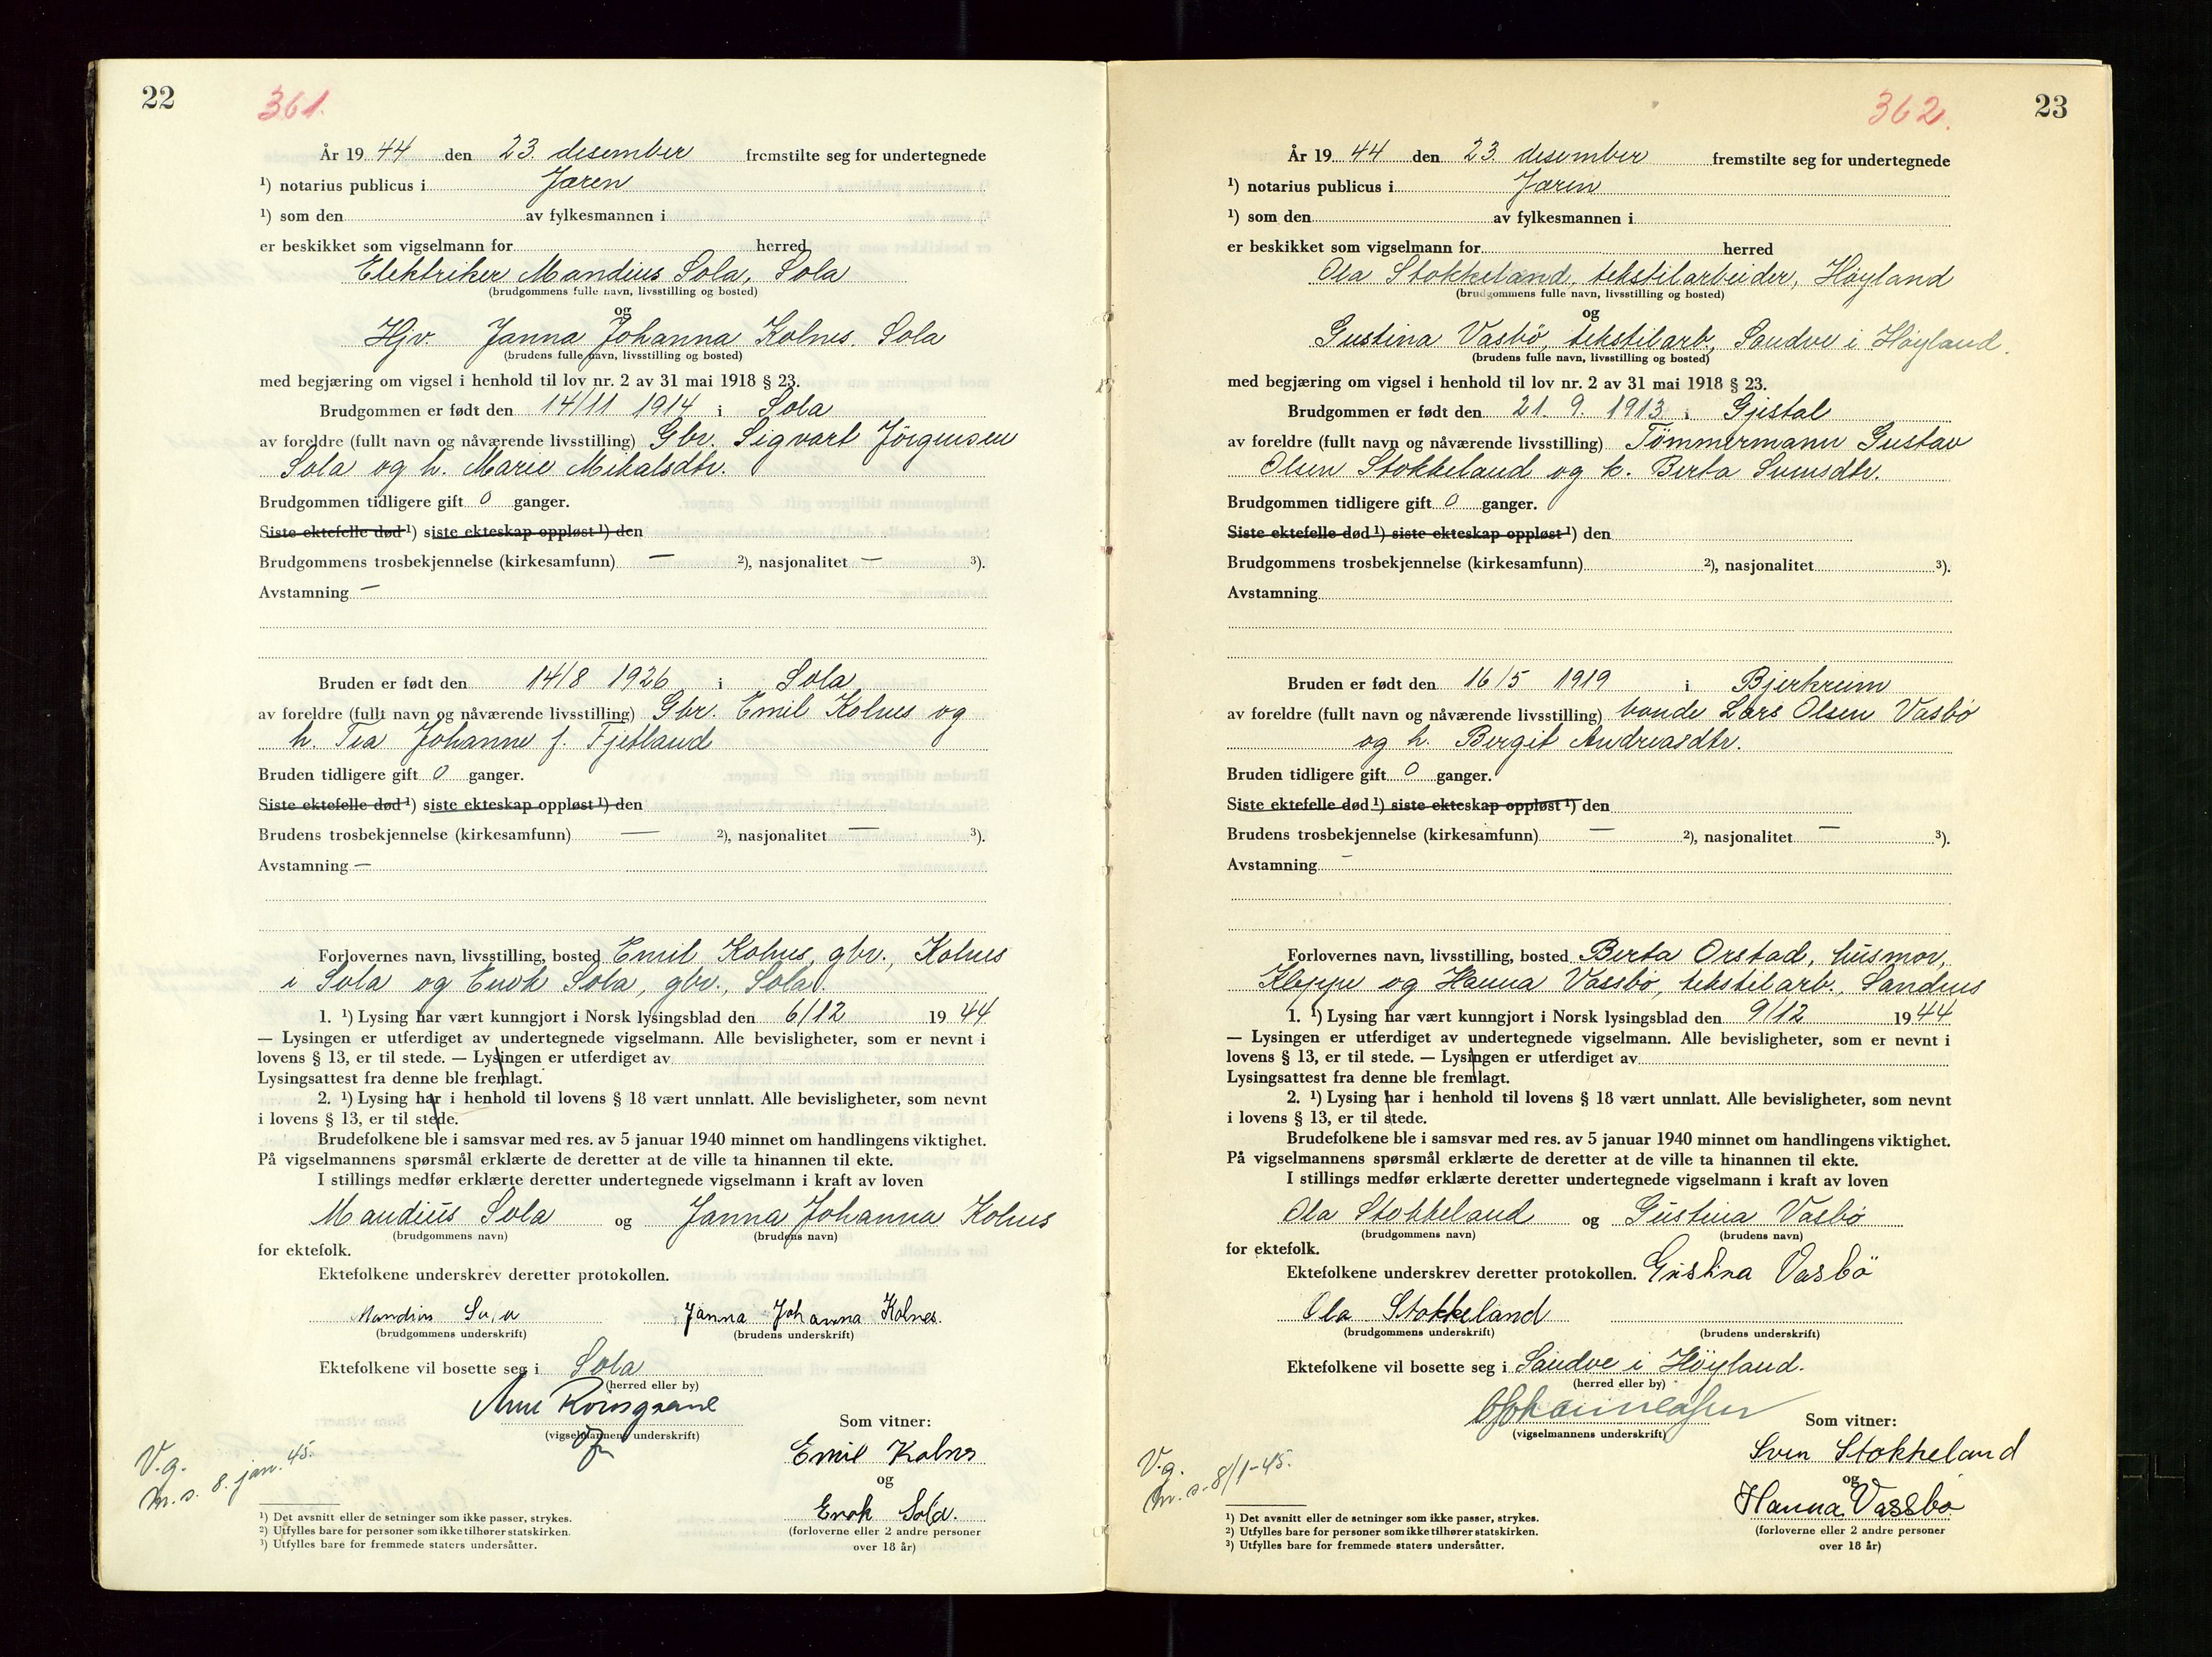 22
361.
År 19 44 den 23. desember fremstilte seg for undertegnede
¹) notarius publicus i Jæren
¹) som den av fylkesmannen i
er beskikket som vigselmann for herred
Elektriker Mandius Sola, Sola
(brudgommens fulle navn, livsstilling og bosted)
og
Hjv. Janna Johanna Kolnes. Sola
(brudens fulle navn, livsstilling og bosted)
med begjæring om vigsel i henhold til lov nr. 2 av 31 mai 1918 § 23.
Brudgommen er født den 14/11 1914 i Sola
av foreldre (fullt navn og nåværende livsstilling) Gbr. Sigvart Jörgensen
Sola og h. Marie Mikalsdtr.
Brudgommen tidligere gift 0 ganger.
Siste ektefelle død ¹) siste ekteskap oppløst ¹) den
Brudgommens trosbekjennelse (kirkesamfunn) — ²), nasjonalitet — ³).
Avstamning —
Bruden er født den 14/8 1926 i Sola
av foreldre (fullt navn og nåværende livsstilling) Gbr. Emil Kolnes og
h. Tea Johanne f. Tjetland
Bruden tidligere gift 0 ganger.
Siste ektefelle død ¹) siste ekteskap oppløst ¹) den
Brudens trosbekjennelse (kirkesamfunn) — ²), nasjonalitet — ³).
Avstamning —
Forlovernes navn, livsstilling, bosted Emil Kolnes, gbr., Kolnes
i Sola og Enok Sola, gbr., Sola.
1. ¹) Lysing har vært kunngjort i Norsk lysingsblad den 6/12 19 44
— Lysingen er utferdiget av undertegnede vigselmann. Alle bevisligheter, som er nevnt i
lovens § 13, er til stede. — Lysingen er utferdiget av
Lysingsattest fra denne ble fremlagt.
2. ¹) Lysing har i henhold til lovens § 18 vært unnlatt. Alle bevisligheter, som nevnt
i lovens § 13, er til stede.
Brudefolkene ble i samsvar med res. av 5 januar 1940 minnet om handlingens viktighet.
På vigselmannens spørsmål erklærte de deretter at de ville ta hinannen til ekte.
I stillings medfør erklærte deretter undertegnede vigselmann i kraft av loven
Mandius Sola og Janna Johanna Kolnes
(brudgommens navn) (brudens navn)
for ektefolk.
Ektefolkene underskrev deretter protokollen.
Mandius Sola Janna Johanna Kolnes.
(brudgommens underskrift) (brudens underskrift)
Ektefolkene vil bosette seg i Sola
(herred eller by)
(vigselmannens underskrift)
Som vitner:
Emil Kolnes
og
Enok Sola.
(forloverne eller 2 andre personer
over 18 år)
V.g.
m.s. 8. jan. 45.
¹) Det avsnitt eller de setninger som ikke passer, strykes.
²) Utfylles bare for personer som ikke tilhører statskirken.
³) Utfylles bare for fremmede staters undersåtter.
23
362.
År 19 44 den 23. desember fremstilte seg for undertegnede
¹) notarius publicus i Jæren
¹) som den av fylkesmannen i
er beskikket som vigselmann for herred
Ola Stokkeland, tekstilarbeider, Höyland
(brudgommens fulle navn, livsstilling og bosted)
og
Gustina Vasbö, tekstilarb, Sandve i Höyland.
(brudens fulle navn, livsstilling og bosted)
med begjæring om vigsel i henhold til lov nr. 2 av 31 mai 1918 § 23.
Brudgommen er født den 21. 9. 1913 i Gjestal
av foreldre (fullt navn og nåværende livsstilling) Tömmermann Gustav
Olsen Stokkeland og h. Berta Svensdtr.
Brudgommen tidligere gift 0 ganger.
Siste ektefelle død ¹) siste ekteskap oppløst ¹) den
Brudgommens trosbekjennelse (kirkesamfunn) ²), nasjonalitet ³).
Avstamning
Bruden er født den 16/5 1919 i Bjerkreim
av foreldre (fullt navn og nåværende livsstilling) bonde Lars Olsen Vasbö
og h. Bergit Andreasdtr.
Bruden tidligere gift 0 ganger.
Siste ektefelle død ¹) siste ekteskap oppløst ¹) den
Brudens trosbekjennelse (kirkesamfunn) — ²), nasjonalitet — ³).
Avstamning -
Forlovernes navn, livsstilling, bosted Berta Orstad, husmor,
Kleppe og Hanna Vassbö, tekstilarb., Sandnes
1. ¹) Lysing har vært kunngjort i Norsk lysingsblad den 9/12 19 44
— Lysingen er utferdiget av undertegnede vigselmann. Alle bevisligheter, som er nevnt i
lovens § 13, er til stede. — Lysingen er utferdiget av
Lysingsattest fra denne ble fremlagt.
2. ¹) Lysing har i henhold til lovens § 18 vært unnlatt. Alle bevisligheter, som nevnt
i lovens § 13, er til stede.
Brudefolkene ble i samsvar med res. av 5 januar 1940 minnet om handlingens viktighet.
På vigselmannens spørsmål erklærte de deretter at de ville ta hinannen til ekte.
I stillings medfør erklærte deretter undertegnede vigselmann i kraft av loven
Ola Stokkeland og Gustina Vasbö
(brudgommens navn) (brudens navn)
for ektefolk.
Ektefolkene underskrev deretter protokollen. Gustina Vasbö
Ola Stokkeland
(brudgommens underskrift) (brudens underskrift)
Ektefolkene vil bosette seg i Sandve i Höyland.
(herred eller by)
(vigselmannens underskrift)
Som vitner:
Sven Stokkeland
og
Hanna Vassbö
(forloverne eller 2 andre personer
over 18 år)
V.g.
m.s. 8/1-45.
¹) Det avsnitt eller de setninger som ikke passer, strykes.
²) Utfylles bare for personer som ikke tilhører statskirken.
³) Utfylles bare for fremmede staters undersåtter.